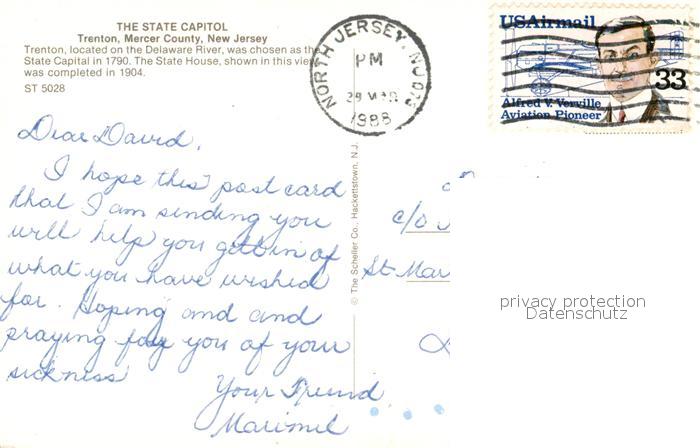 THE STATE CAPITOL
Trenton, Mercer County, New Jersey
Trenton, located on the Delaware River, was chosen as the
State Capital in 1790. The State House, shown in this view
was completed in 1904.
ST 5028
NORTH JERSEY, NJ 073
PM
29 MAR
1988
USAirmail
33
Alfred V. Verville
Aviation Pioneer
Dear David,
I hope this post card
that I am sending you
will help you gettin of
what you have wished
for. Hoping and and
praying for you of your
sickness
Your Friend
© The Scheller Co., Hackettstown, N.J.
c/o
St Mar
privacy protection
Datenschutz